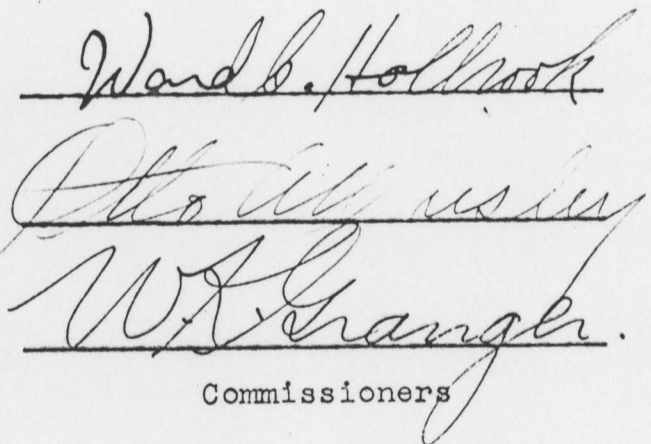 Ward C. Holbrook
Otto A. Wiesley
W. K. Granger.
Commissioners